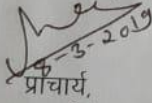 8-3-2019
प्राचार्य,